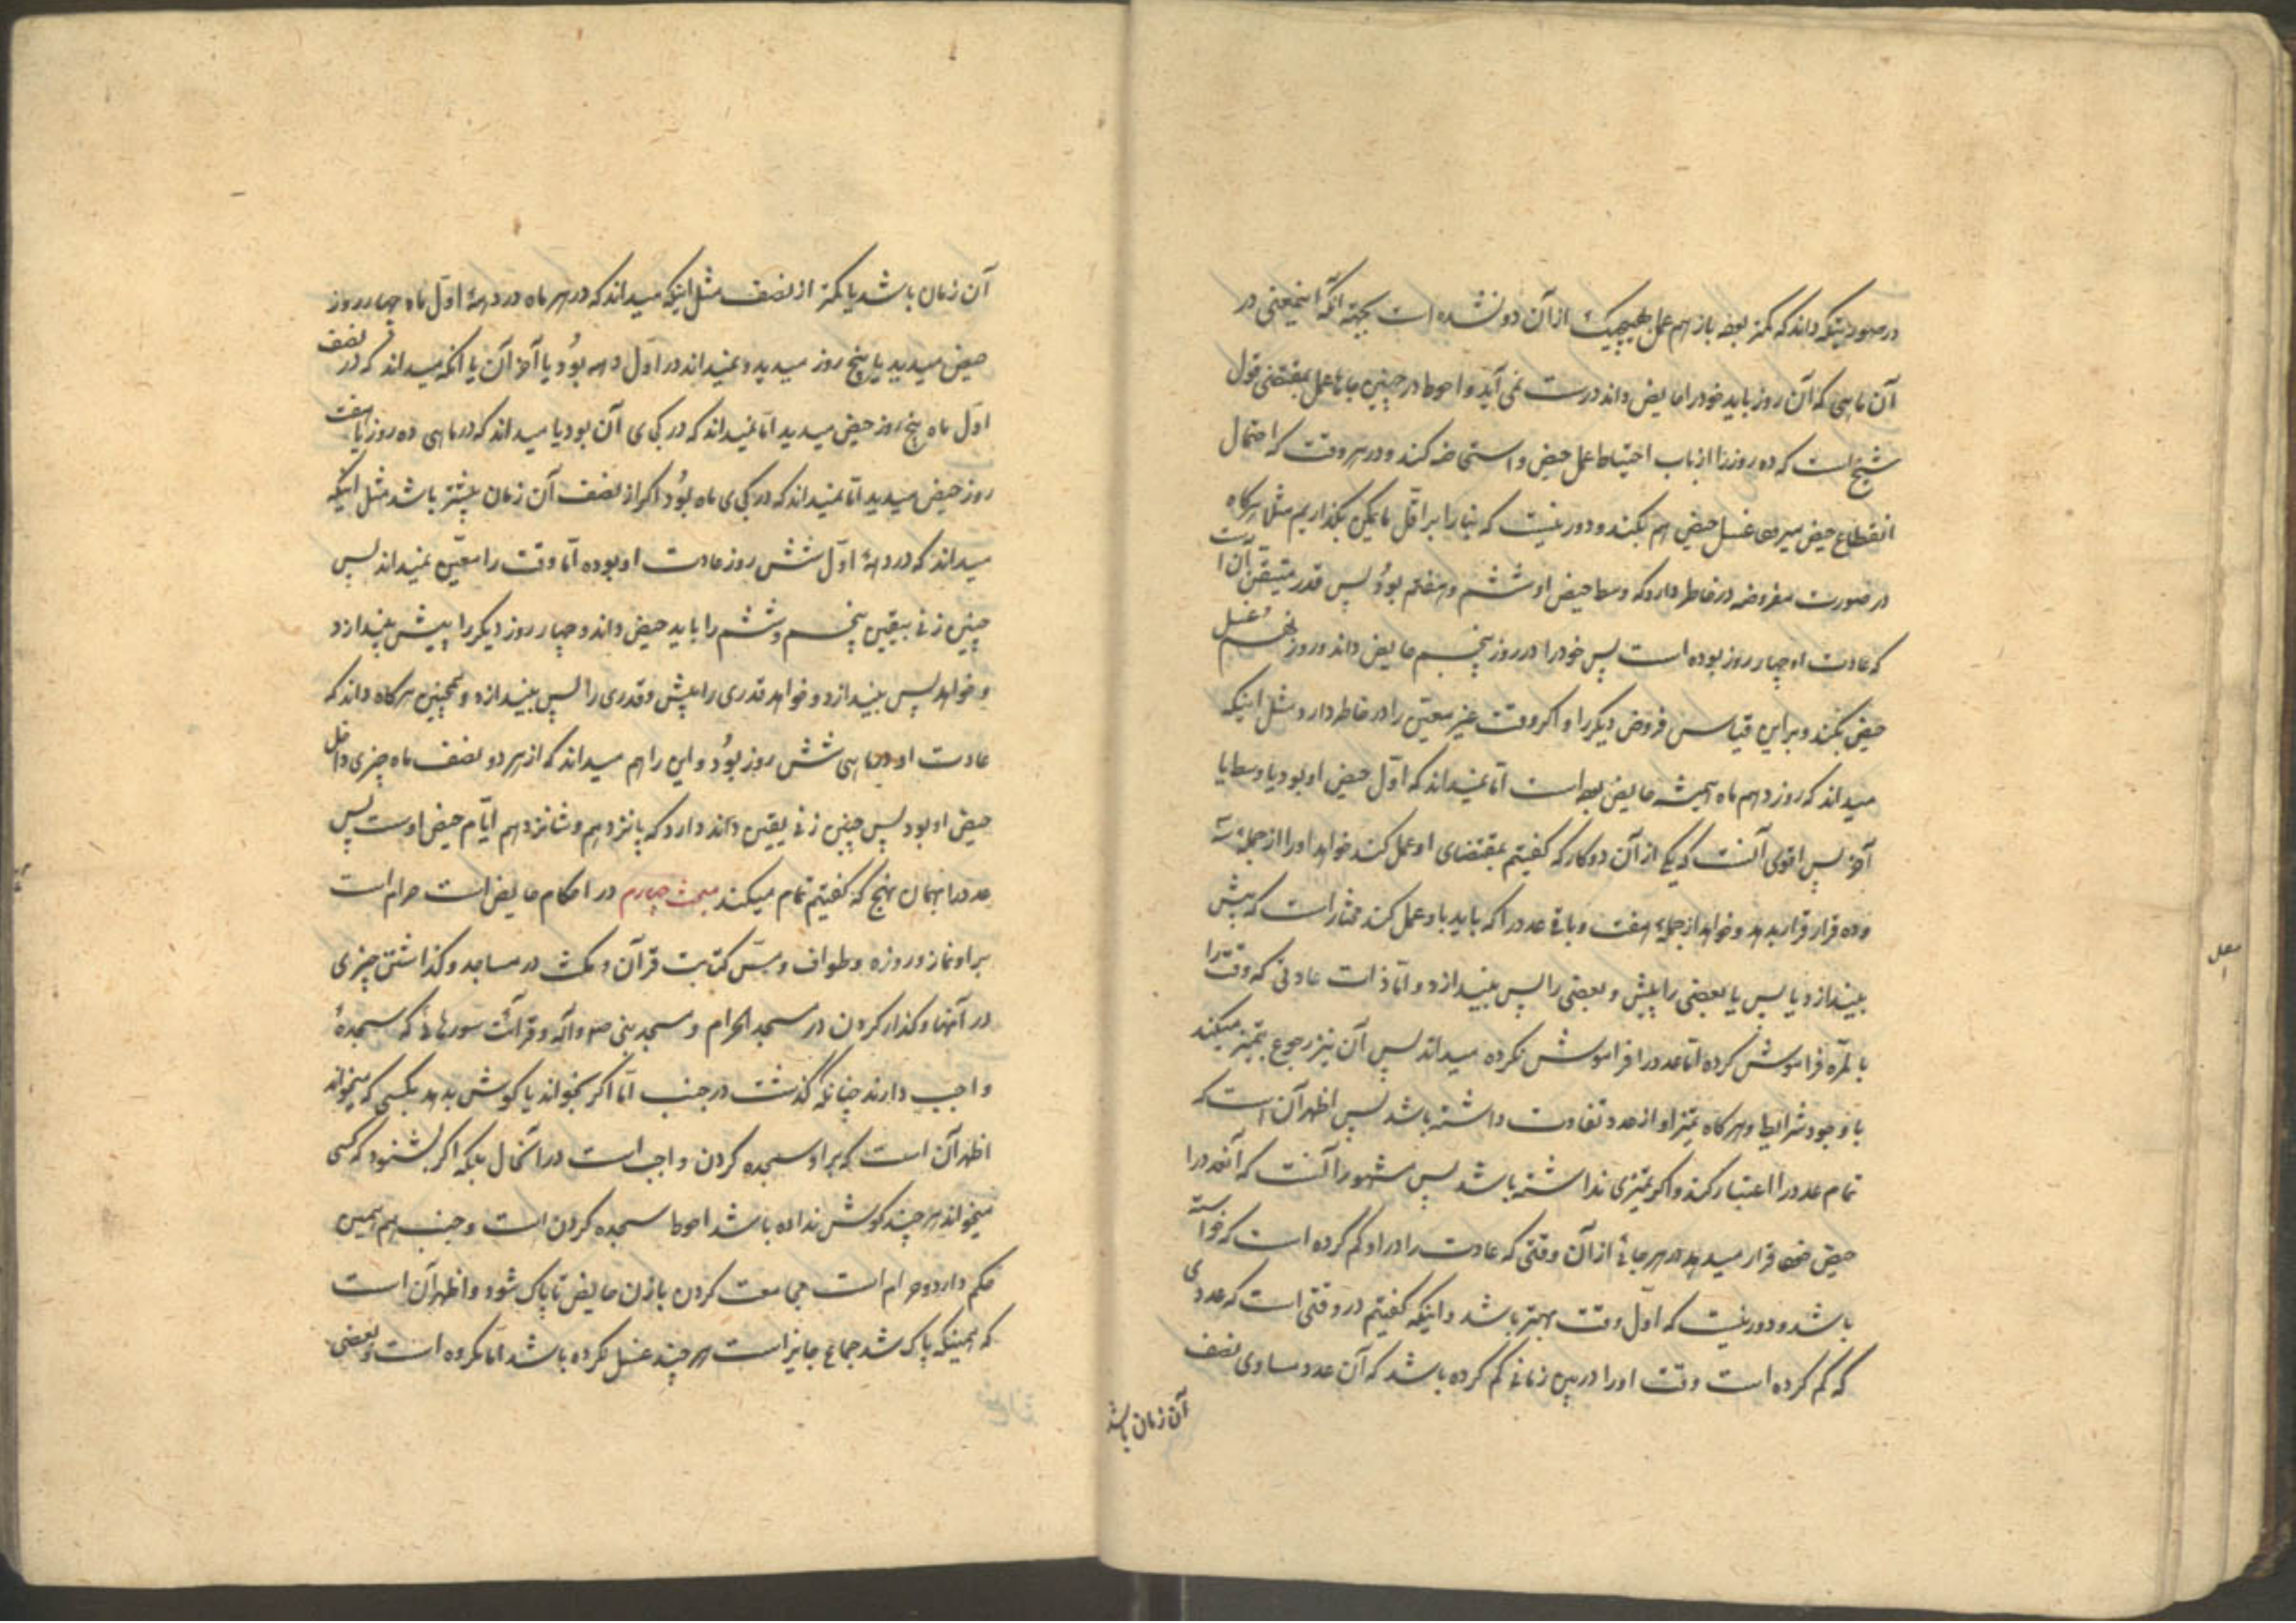 در صورتیکه داند که کمتر بوده باز هم عمل بهیچیک از آن دو نشده است بجهة آنکه اینمعنی در
آن ماهی که آن روز باید خود را حایض داند درست نمی آید و احوط در چنین جاها عمل بمقتضی قول
شیخ است که ده روز را از باب احتیاط عمل حیض و استحاضه کند و در هر وقت که احتمال
انقطاع حیض میرود غسل حیض هم بکند و دور نیست که بنا را بر اقل ما یمکن بگذاریم مثل هرگاه
در صورت مفروضه در خاطر دارد که وسط حیض او ششم و هفتم بود پس قدر متیقن آن است
که عادت او چهار روز بوده است پس خود را در روز پنجم حایض داند و روز نهم غسل
حیض بکند و بر این قیاس فروض دیگر را و اگر وقت غیر معین را در خاطر دارد مثل اینکه
میداند که روز دهم ماه همیشه حایض بوده است اما نمیداند که اول حیض او بود یا وسط یا
آخر پس اقوی آنست که یکی از آن دو کار که گفتیم بمقتضای او عمل کند خواهد او را از جمله سه
و ده قرار قرار بدهد و خواهد از جمله هفت و باقی عدد را که باید باو عمل کند مختار است که پیش
بیندازد یا پس یا بعضی را پیش و بعضی را پس بیندازد و اما ذات عادتی که وقت را
بالمره فراموش کرده اما عدد را فراموش نکرده میداند پس آن نیز رجوع بتمیز میکند
با وجود شرایط و هرگاه تمیز او از عدد تفاوت داشته باشد پس اظهر آن است که
تمام عدد را اعتبار کند و اگر تمیزی نداشته باشد پس مشهور آنست که آنعدد را
حیض خود قرار میدهد در هر جائی از آن وقتی که عادت را در او گم کرده است که خواسته
باشد و دور نیست که اول وقت بهتر باشد و اینکه گفتیم در وقتی است که عددی
که گم کرده است وقت او را در بین زمانی گم کرده باشد که آن عدد مساوی نصف
آن زمان باشد
آن زمان باشد یا کمتر از نصف مثل اینکه میداند که در هر ماه در دهۀ اول ماه چهار روز
حیض میدید یا پنج روز میدید و نمیداند در اول دهه بود یا آخر آن یا آنکه میداند که در نصف
اول ماه پنج روز حیض میدید اما نمیداند که در کجای آن بود یا میداند که در ماهی ده روز یا هفت
روز حیض میدید اما نمیداند که در کجای ماه بود اگر از نصف آن زمان بیشتر باشد مثل اینکه
میداند که در دهۀ اول شش روز عادت او بوده اما وقت را معین نمیداند پس
چنین زنی بیقین پنجم و ششم را باید حیض داند و چهار روز دیگر را پیش بیندازد
و خواهد پس بیندازد و خواهد قدری را پیش و قدری را پس بیندازد و همچنین هرگاه داند که
عادت او در ماهی شش روز بود و این را هم میداند که از هر دو نصف ماه چیزی داخل
حیض او بود پس چنین زنی یقین داند دارد که پانزدهم و شانزدهم ایام حیض اوست پس
عدد را بهمان نهج که گفتیم تمام میکند مبحث چهارم در احکام حایض است حرام است
بر او نماز و روزه و طواف و مس کتابت قرآن و مکث در مساجد و گذاشتن چیزی
در آنها و گذار کردن در مسجد الحرام و مسجد نبی ص و آله و قرائت سورهائی که سجدۀ
واجب دارند چنانکه گذشت در جنب اما اگر بخواند یا گوش بدهد بکسی که میخواند
اظهر آن است که بر او سجده کردن واجب است در آنحال بلکه اگر بشنود که کسی
میخواند هر چند گوش نداده باشد احوط سجده کردن است و جنب هم همین
حکم دارد و حرام است مجامعت کردن با زن حایض تا پاک شود و اظهر آن است
که همینکه پاک شد جماع جایز است هر چند غسل نکرده باشد اما مکروه است و بعضی